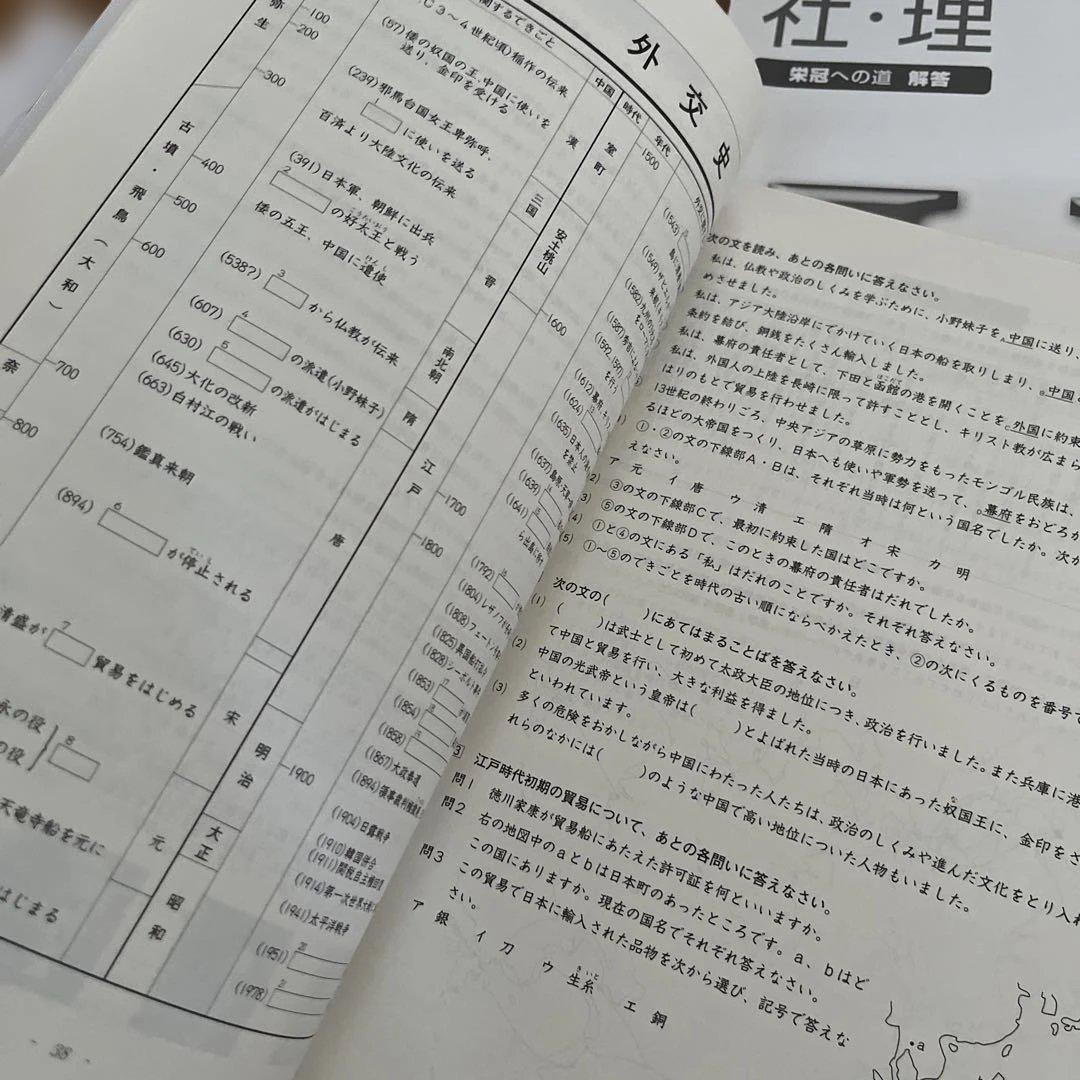 社・理
栄冠への道 解答
外交史
弥生
古墳・飛鳥(大和)
奈
100
200
300
400
500
600
700
800
関するできごと
C3~4世紀頃)稲作の伝来
(57)倭の奴国の王、中国に使いを
送り、金印を受ける
(239)邪馬台国女王卑弥呼、
1
に使いを送る
百済より大陸文化の伝来
(391)日本軍、朝鮮に出兵
2
の好太王と戦う
倭の五王、中国に遣使
(538?)
3
から仏教が伝来
(607)
4
の派遣(小野妹子)
(630)
5
の派遣がはじまる
(645)大化の改新
(663)白村江の戦い
(754)鑑真来朝
(894)
6
が停止される
清盛が
7
貿易をはじめる
永の役
の役
8
天竜寺船を元に
はじまる
中国
漢
三国
晋
南北朝
隋
唐
宋
元
時代
室町
安土桃山
江戸
明治
大正
昭和
年代
1500
1600
1700
1800
1900
(1543)
(1549)ザビエル
(1582)九州の
(1587)秀吉による
(1592、(597)
(1612)幕府、
(1624)
(1635)日本人の
を禁止
(1637)島原・天草
(1639)
(1641)
(1792)
(1804)レザノフ
(1808)フェートン
(1825)異国船打払
(1828)シーボルト
(1853)
17
(1854)
(1858)
(1867)大政奉還
(1894)領事裁判権
(1904)日露戦争
(1910)韓国併合
(1911)関税自主権回復
(1914)第一次世界大戦
(1941)太平洋戦争
(1951)
20
(1978)
21
- 38 -
次の文を読み、あとの各問いに答えなさい。
私は、仏教や政治のしくみを学ぶために、小野妹子を、中国に送り、
めさせました。
私は、アジア大陸沿岸にでかけていく日本の船を取りしまり、中国
条約を結び、銅銭をたくさん輸入しました。
私は、幕府の責任者として、下田と函館の港を開くことを、外国に約束
私は、外国人の上陸を長崎に限って許すこととし、キリスト教が広まら
はりのもとで貿易を行わせました。
13世紀の終わりごろ、中央アジアの草原に勢力をもったモンゴル民族は、
るほどの大帝国をつくり、日本へも使いや軍勢を送って、幕府をおどろか
①・②の文の下線部A・Bは、それぞれ当時は何という国名でしたか。次か
えなさい。
ア 元 イ 唐 ウ 清 エ 隋 オ 宋 カ 明
(2) ③の文の下線部Cで、最初に約束した国はどこですか。
(3) ⑤の文の下線部Dで、このときの幕府の責任者はだれでしたか。
(4) ①と④の文にある「私」はだれのことですか。それぞれ答えなさい。
(5) ①~⑤のできごとを時代の古い順にならべかえたとき、②の次にくるものを番号で
次の文の( )にあてはまることばを答えなさい。
(1) ( )は武士として初めて太政大臣の地位につき、政治を行いました。また兵庫に港
て中国と貿易を行い、大きな利益を得ました。
(2) 中国の光武帝という皇帝は( )とよばれた当時の日本にあった奴国王に、金印をさ
といわれています。
(3) 多くの危険をおかしながら中国にわたった人たちは、政治のしくみや進んだ文化をとり入れ
れらのなかには( )のような中国で高い地位についた人物もいました。
3 江戸時代初期の貿易について、あとの各問いに答えなさい。
問1 徳川家康が貿易船にあたえた許可証を何といいますか。
問2 右の地図中のaとbは日本町のあったところです。a、bはど
この国にありますか。現在の国名でそれぞれ答えなさい。
問3 この貿易で日本に輸入された品物を次から選び、記号で答えな
さい。
ア 銀 イ 刀 ウ 生糸 エ 銅
a